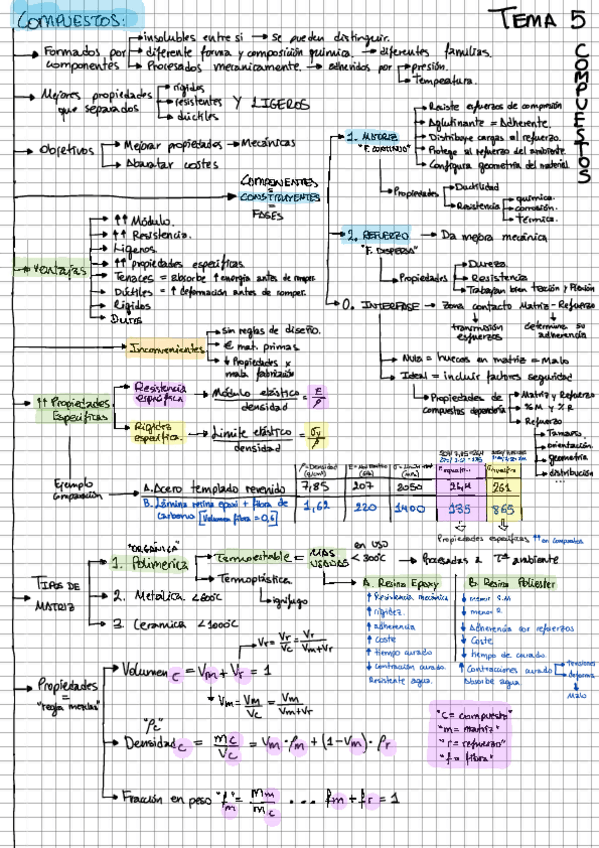 COMPUESTOS:
TEMA 5
COMPUESTOS
Formados por componentes
insolubles entre si → Se pueden distinguir.
diferente forma y composición quimica. → diferentes familias.
Procesados mecanicamente. → adheridos por
presión.
Temperatura.
Mejores propiedades que separados
rígidos
resistentes Y LIGEROS
dúctiles
Objetivos
Mejorar propiedades → Mecánicas
Abaratar costes
COMPONENTES
=
CONSTITUYENTES
=
FASES
1. MATRIZ
"F. CONTINUO"
Resiste esfuerzos de compresión
Aglutinante = Adherente.
Distribuye cargas al refuerzo.
Protege al refuerzo del ambiente
Configura geometría del material
Propiedades
Ductilidad
Resistencia
química.
corrosión.
Térmica.
2. REFUERZO → Da mejora mecánica
"F. DISPERSA"
Propiedades
Dureza
Resistencia
Trabajan bien Tracción y Flexión
0. INTERFASE → Zona contacto Matriz - Refuerzo
transmisión esfuerzos
determina su adherencia
Nula = huecos en matriz = Malo
Ideal = incluir factores seguridad
Propiedades de compuestos dependerá
Matriz y Refuerzo
% M y % R
Refuerzo
Tamaño.
orientación.
geometría
distribución
...
Ventajas
↑↑ Módulo.
↑↑ Resistencia.
Ligeros.
↑↑ propiedades específicas
Tenaces = absorbe ↑ energía antes de romper.
Dúctiles = ↑ deformación antes de romper.
Rígidos
Duros
Inconvenientes
Sin reglas de diseño.
€ mat. primas
↓ Propiedades x mala fabricación
↑↑ Propiedades Específicas
Resistencia específica → Módulo elástico / densidad = E / ρ
Rigidez específica. → Limite elástico / densidad = σy / ρ
Ejemplo comparación
A. Acero templado revenido 7,85 207 2050 26,4 261
B. Lámina resina epoxi + fibra de carbono [Volumen fibra = 0,6] 1,62 220 1400 135 865
Propiedades específicas ↑↑ en compuestos
TIPOS DE MATRIZ
"ORGÁNICA"
1. Polimerica
Termoestable = MAS USADOS
en USO < 300ºC → Procesadas a Tª ambiente
Termoplástica.
ignífugo
2. Metálica < 800ºC
3. Cerámica < 1000ºC
A. Resina Epoxy
↑ Resistencia mecánica
↑ rigidez
↑ adherencia
↑ Coste
↑ tiempo curado
↓ contracción curado.
Resistente agua.
B. Resina Poliester
↓ menor R.M
↓ menor R
↓ Adherencia con refuerzos
↓ Coste
↓ tiempo de curado
↑ Contracciones curado
Tensiones
deforma
Malo
Absorbe agua.
Propiedades
=
"regla mezclas"
Vr = Vr / Vc = Vr / Vm+Vr
Volumen c = Vm + Vr = 1
Vm = Vm / Vc = Vm / Vm+Vr
"ρc"
Densidad c = mc / Vc = Vm · ρm + (1-Vm) · ρr
Fracción en peso "f" m = mm / mc ... fm + fr = 1
"c = compuesto"
"m = matriz"
"r = refuerzo"
"f = fibra"